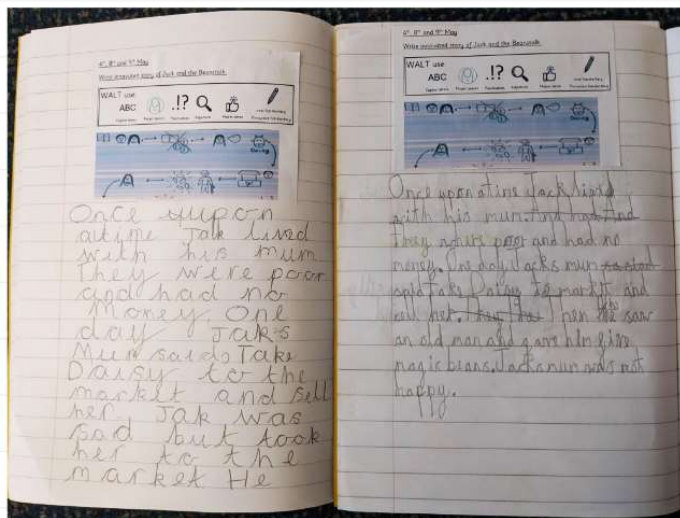 4th, 8th and 9th May
Write innovated story of Jack and the Beanstalk
WALT use
ABC .!?
Once yupon
atime Jak lived
with his mum
They were poor
and had no
money. One
day Jak's
Mum said Take
Daisy to the
market and sell
her. Jak was
sad but took
her to the
market He
4th, 8th and 9th May
Write innovated story of Jack and the Beanstalk
WALT use
ABC .!?
Once upon a time Jack
with his mum. And had And
They poor and had no
money. One day Jacks mum
Take Daisy to market and
her. Then he saw
an old man and gave him five
magic beans. Jacks mum was not
happy.